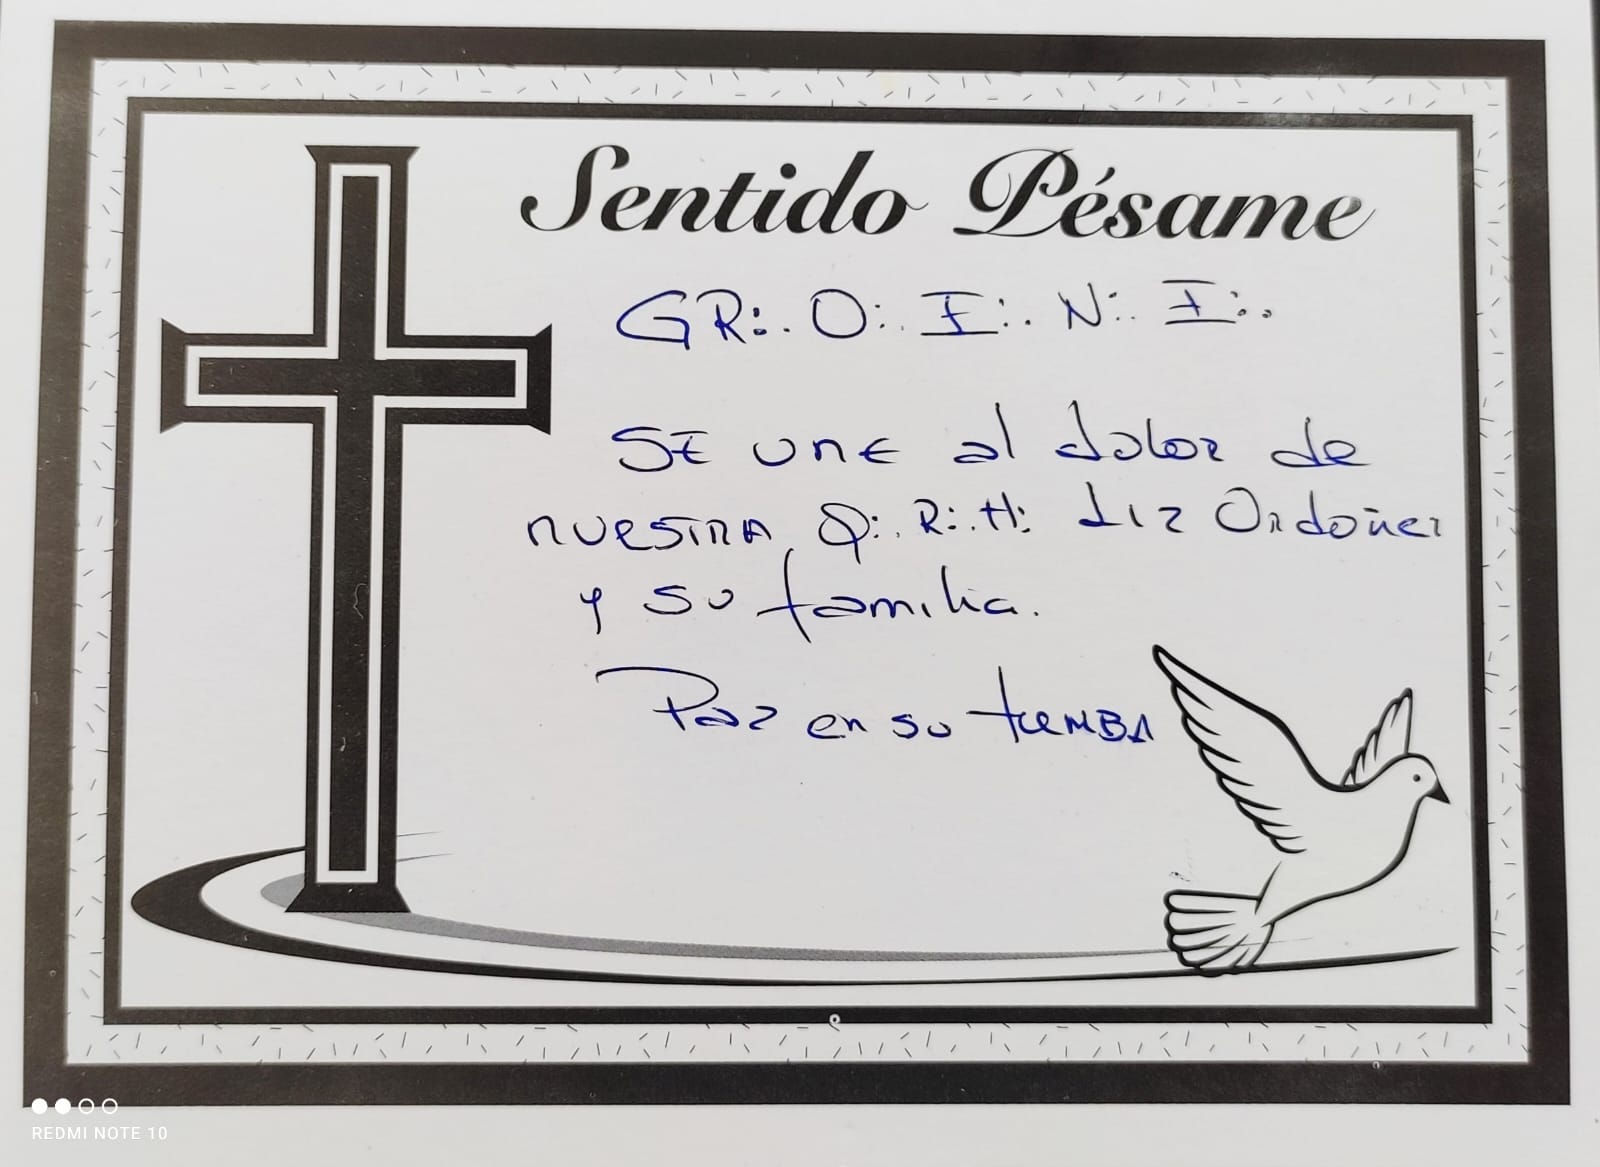 Sentido Pésame
GR:. O:. I:. N:. I:.
SE une al dolor de
nuestra Q:. R:. H: Liz Ordoñez
y su familia.
Paz en su tumba
REDMI NOTE 10